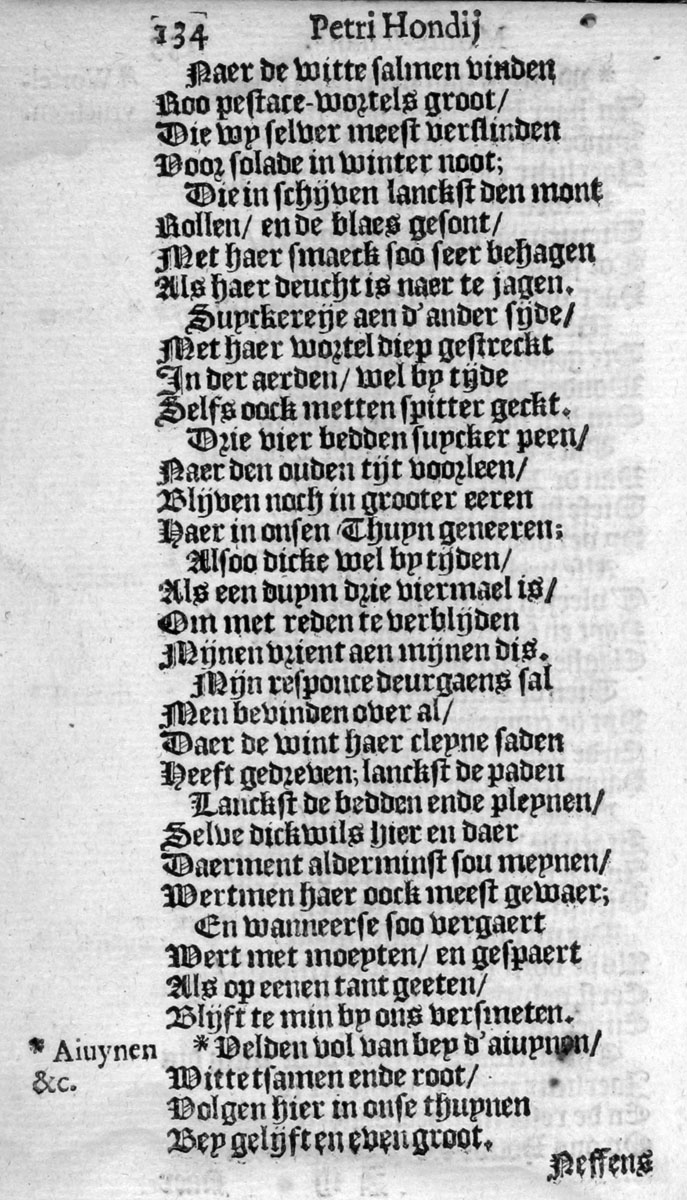 134 Petri Hondij
Naer de witte salmen vinden
Roo pestace-wortels groot/
Die wy selver meest verslinden
Voor solade in winter noot;
Die in schijven lanckst den mont
Rollen/ en de blaes gesont/
Met haer smaeck soo seer behagen
Als haer deucht is naer te jagen.
Suyckereije aen d'ander sijde/
Met haer wortel diep gestreckt
In der aerden/ wel by tijde
Selfs oock metten spitter geckt.
Drie vier bedden suycker peen/
Naer den ouden tijt voorleen/
Blijven noch in grooter eeren
Haer in onsen Thuyn geneeren;
Alsoo dicke wel by tijden/
Als een duym drie viermael is/
Om met reden te verblijden
Mijnen vrient aen mijnen dis.
Mijn responce deurgaens sal
Men bevinden over al/
Daer de wint haer cleyne saden
Heeft gedreven; lanckst de paden
Lanckst de bedden ende pleynen/
Selve dickwils hier en daer
Daerment alderminst sou meynen/
Wertmen haer oock meest gewaer;
En wanneerse soo vergaert
Wert met moeyten/ en gespaert
Als op eenen tant geeten/
Blijft te min by ons versmeten.
* Aiuynen
&c.
* Velden vol van bey d'aiuynen/
Witte tsamen ende root/
Volgen hier in onse thuynen
Bey gelijft en even groot.
Neffens